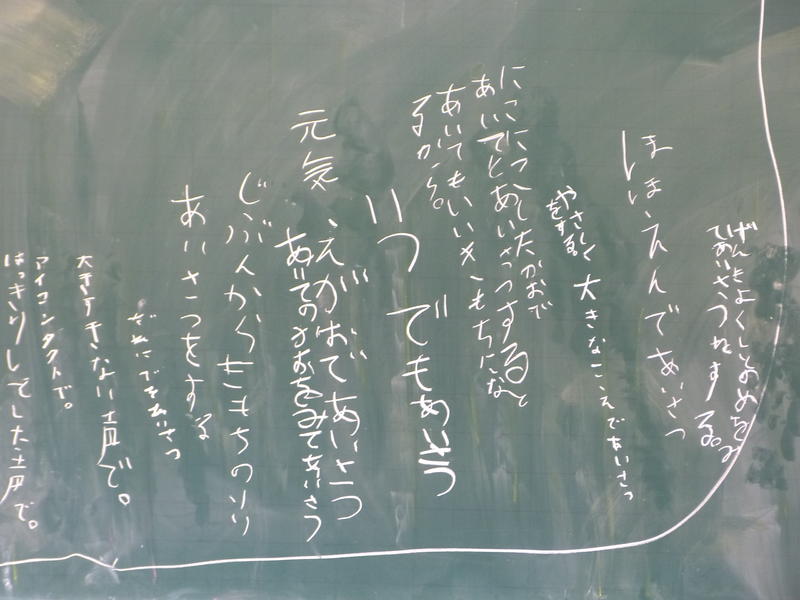 げんきよくひとのめをみ
てあいさつをする。
ほほえんであいさつ
やさしく
をする。
大きなこえであいさつ
にこにこした かおで
あいてとあいさつすると
あいてもいいきもちにな
るから。
いつでもあいさつ
元気、えがおであいさつ
あいてのかおをみてあいさつ
じぶんからきもちのいい
あいさつをする
だれにでもあいさつ
大きすぎない声で。
アイコンタクトで。
はっきりとした声で。